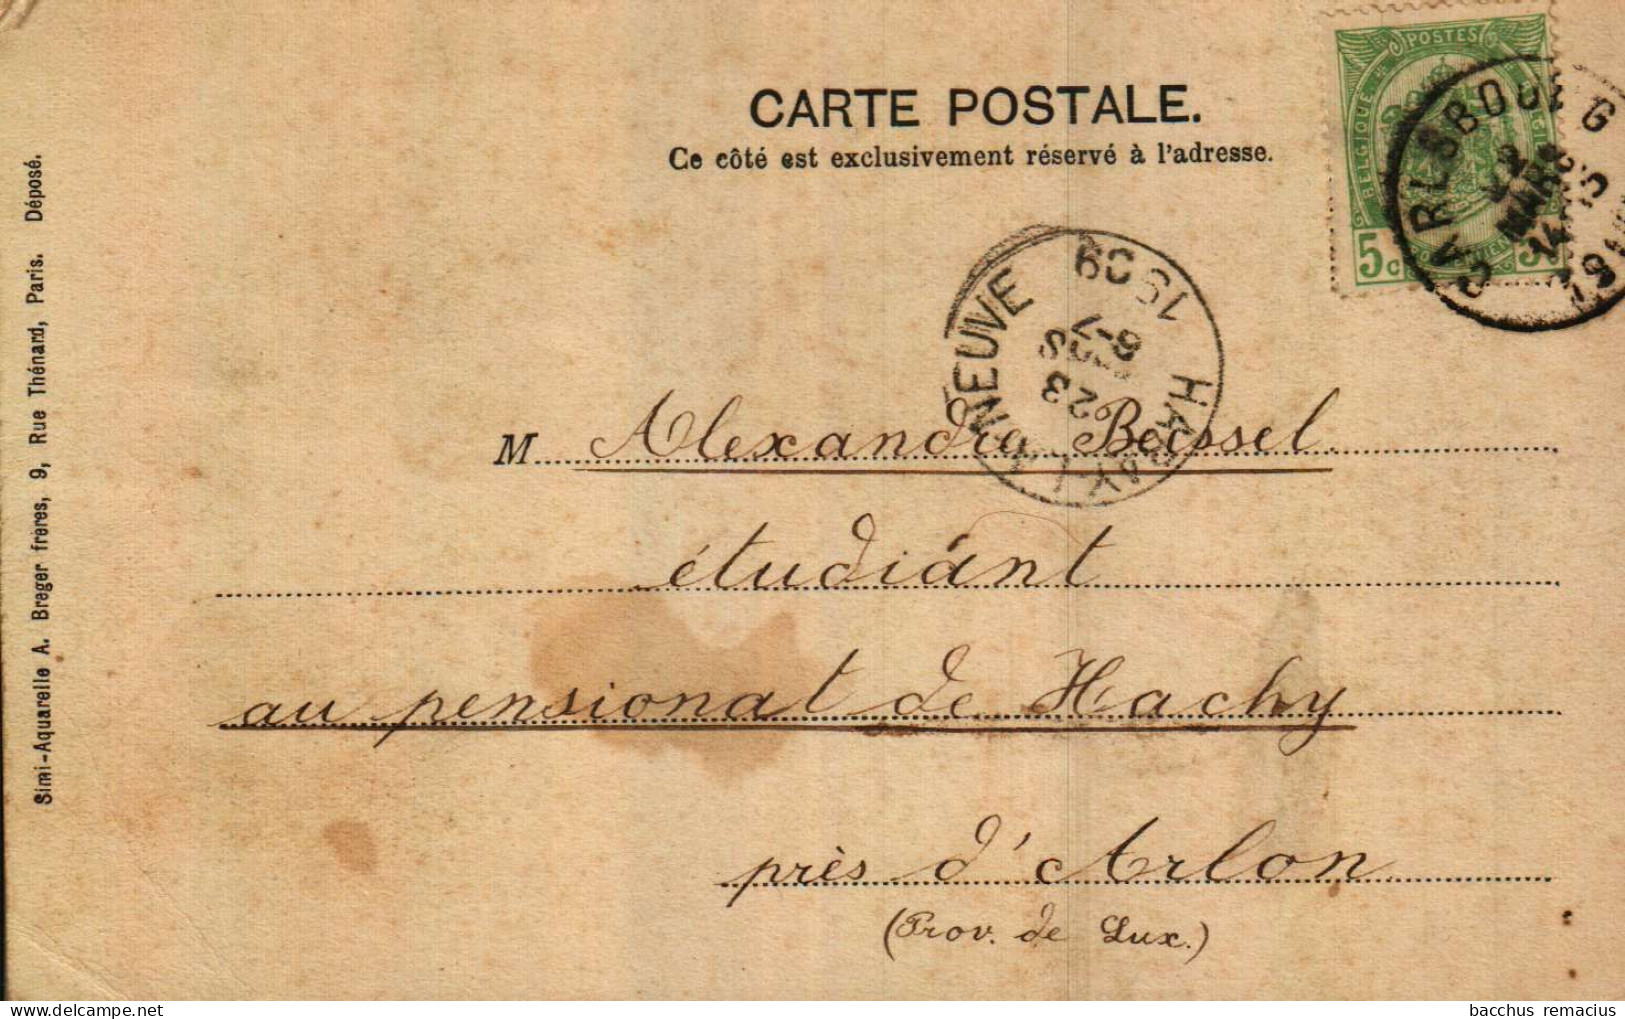 POSTES
BELGIQUE
5c
CARTE POSTALE.
Ce côté est exclusivement réservé à l'adresse.
CARLSBOURG
22
MARS
14
19
NEUVE
HABAY-LA
1909
6-7
MARS
23
M. Alexandre Beissel
étudiant
au pensionat de Hachy
près d'Arlon
(Prov. de Lux.)
Simi-Aquarelle A. Breger frères, 9, Rue Thénard, Paris. Déposé.
bacchus remacius